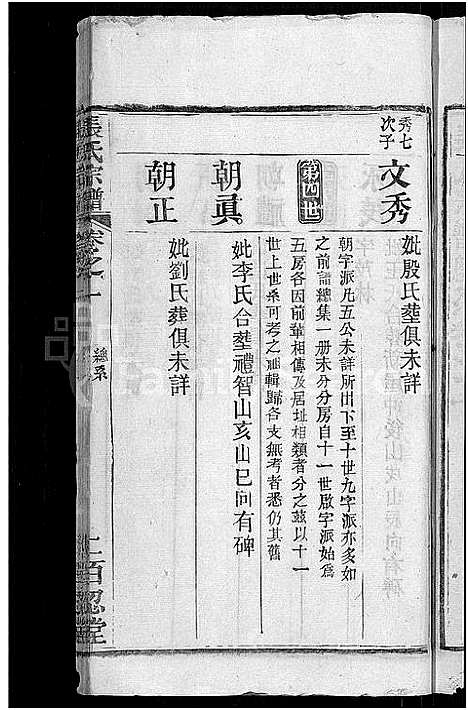 秀七
次子
文秀
妣殷氏塟俱未詳
第四世
朝字派凡五公未詳所出下至十世九字派亦多如
之前譜總集一册未分分房自十一世啟字派始爲
五房各因前輩相傳及居址相類者分之茲以十一
世上世系可考之祖輯歸各支無考者悉仍其舊
朝真
妣李氏合塟禮智山亥山巳向有碑
朝正
妣劉氏葬俱未詳
張氏宗譜
卷之一
總系
百忍堂